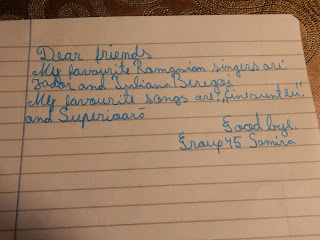 Dear friends
My favourite Romanian singers are:
Jador and Iuliana Beregoi
My favourite songs are: „Cinesunteu"
and Superioară
Good bye!
Group 45 Samira